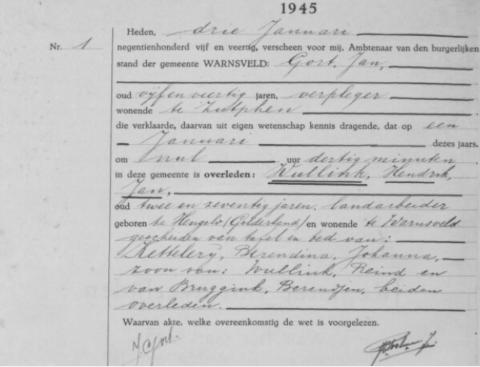 1945
Heden, drie Januari
Nr. 1 negentienhonderd vijf en veertig, verscheen voor mij, Ambtenaar van den burgerlijken
stand der gemeente WARNSVELD: Gort, Jan,
oud vijf en veertig jaren, verpleger
wonende te Zutphen
die verklaarde, daarvan uit eigen wetenschap kennis dragende, dat op een
Januari dezes jaars.
om nul uur dertig minuten
in deze gemeente is overleden: Wullink, Hendrik
Jan,
oud twee en zeventig jaren, landarbeider
geboren te Hengelo (Gelderland) en wonende te Warnsveld
gescheiden van tafel en bed van:
Berendina, Johanna,
zoon van: Wullink, Reind en
van Bruggink, Berendjen, beiden
overleden.
Waarvan akte, welke overeenkomstig de wet is voorgelezen.
J. Gort.